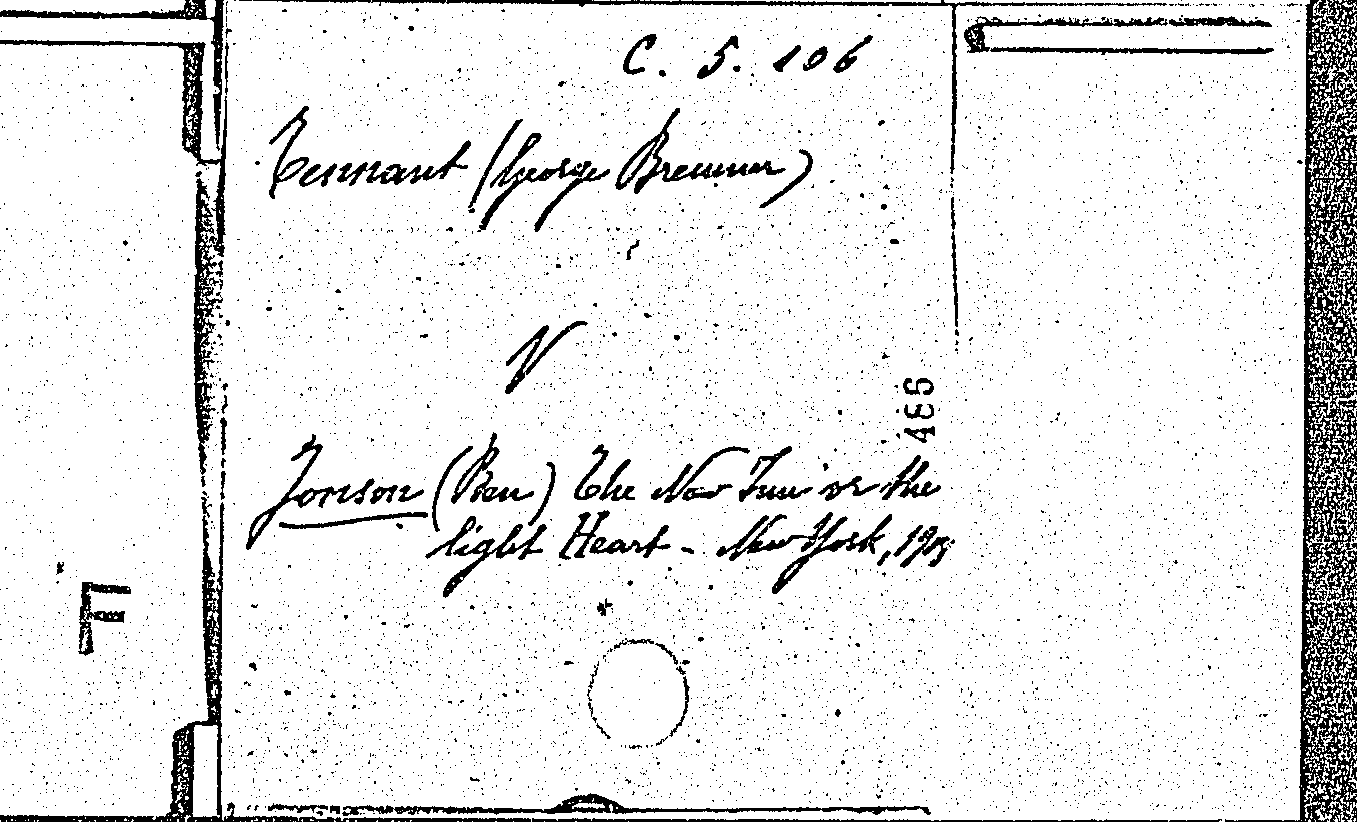 C. 5. 106
Tennant (George Bremner)
V
486
Jonson (Ben) The New Inn or the
light Heart - New York, 1908
F